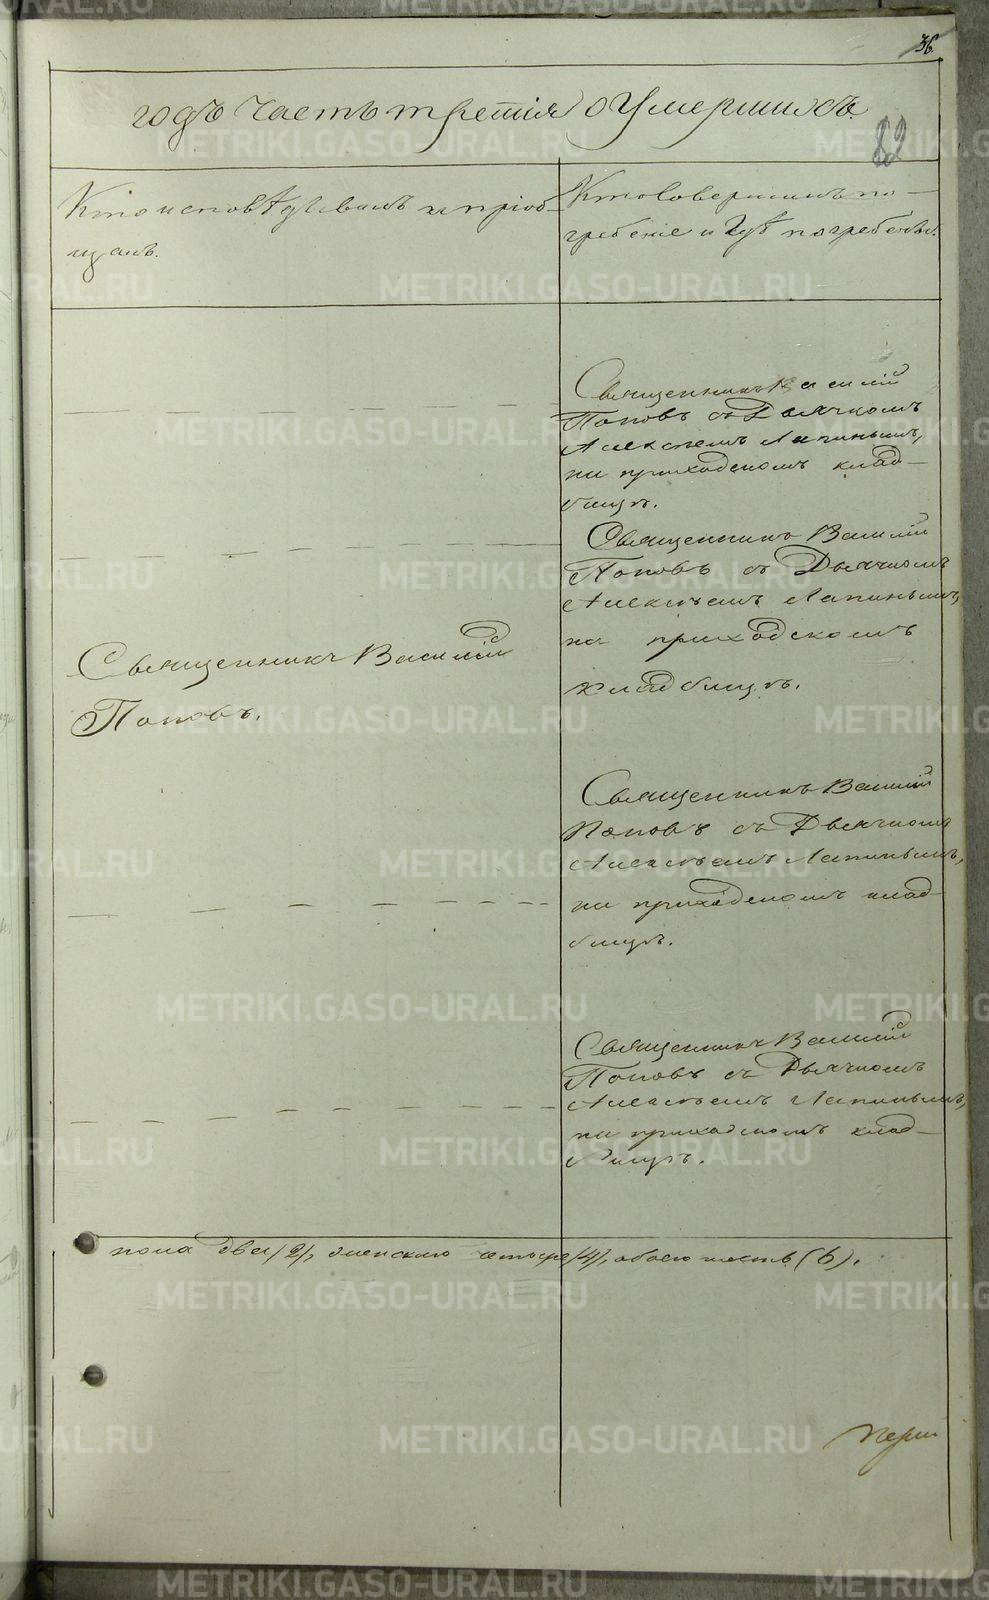 36
годъ часть третія о умершихъ.
82
Кто исповѣдывалъ и пріоб-
щалъ.
Кто совершилъ по-
гребеніе и гдѣ погребены.
Священникъ Василій
Поповъ съ Дьячкомъ
Алексѣемъ Лапинымъ,
на приходскомъ клад-
бищѣ.
Священникъ Василій
Поповъ съ Дьячкомъ
Алексѣемъ Лапинымъ,
на приходскомъ
кладбищѣ.
Священникъ Василій
Поповъ.
Священникъ Василій
Поповъ съ Дьячкомъ
Алексѣемъ Лапинымъ,
на приходскомъ клад-
бищѣ.
Священникъ Василій
Поповъ съ Дьячкомъ
Алексѣемъ Лапинымъ,
на приходскомъ клад-
бищѣ.
пола два /2/, женскаго четыре /4/, обоего шесть (6).
METRIKI.GASO-URAL.RU